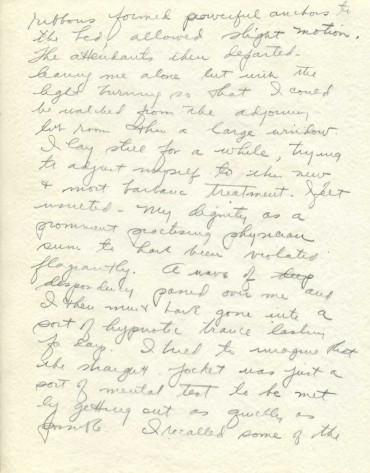 ribbons formed powerful anchors to
the bed, allowed slight motion.
The attendants then departed -
leaving me alone but with the
light burning so that I could
be watched from the adjoining
room thru a large window
I lay still for a while, trying
to adjust myself to the new
& most barbaric treatment. I felt
insulted - My dignity as a
prominent practising physician
seem to have been violated
flagrantly. A wave of deep
despondency passed over me and
I then must have gone into a
sort of hypnotic trance lasting
10 days. I tried to imagine that
the straight jacket was just a
sort of mental test to be met
by getting out as quickly as
possible I recalled some of the